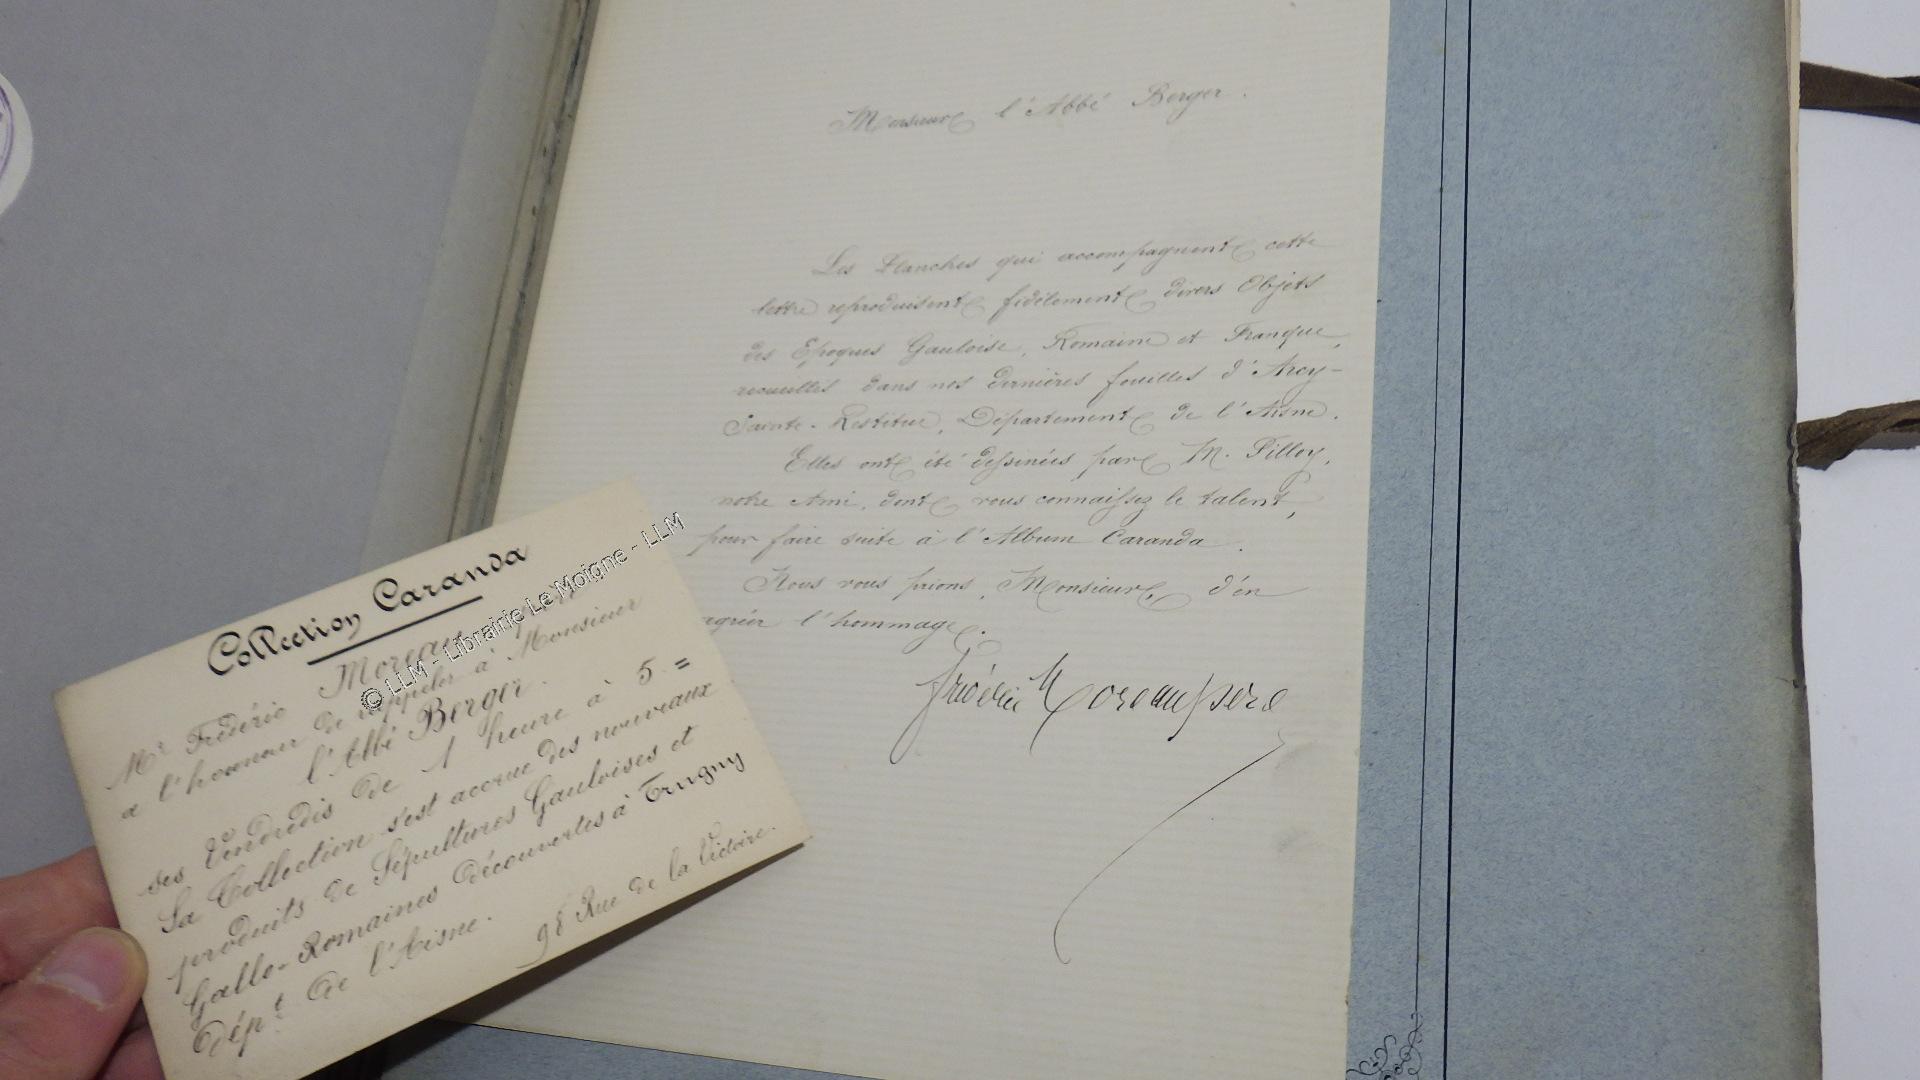 Monsieur l'Abbé Berger.
Les Planches qui accompagnent cette
lettre reproduisent fidèlement divers Objets
des Epoques Gauloise, Romaine et Franque,
recueillis dans nos dernières fouilles d'Arcy-
Sainte-Restitue, Département de l'Aisne.
Elles ont été dessinées par M. Pilloy,
notre Ami, dont vous connaissez le talent,
pour faire suite à l'Album Caranda.
Nous vous prions, Monsieur, d'en
agréer l'hommage.
Frédéric Moreau père
Collection Caranda
Mr Frédéric Moreau père
a l'honneur de rappeler à Monsieur
l'Abbé Berger.
ses Vendredis de 1 heure à 5 =
La Collection s'est accrue des nouveaux
produits de Sépultures Gauloises et
Gallo-Romaines découvertes à Trugny
dépt de l'Aisne.
98 Rue de la Victoire.
© LLM - Librairie Le Moigne - LLM